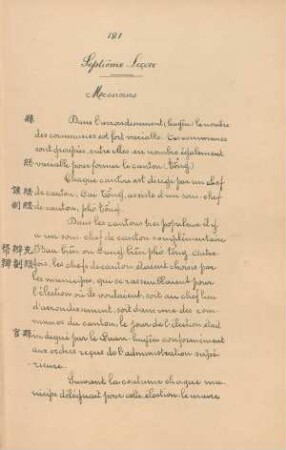 181
Septième Leçon
Messieurs
縣 Dans l'arrondissement (huyện) le nombre
des communes est fort variable. Ces communes
sont groupées entre elles en nombre également
總 variable pour former le canton (tổng).
Chaque canton est dirigé par un chef
該總 de canton, Cai tổng, assisté d'un sous-chef
副總 de canton, phó tổng.
Dans les cantons très populeux il y
a un sous-chef de canton complémentaire
fois, les chefs de canton étaient choisis par
les municipes, qui se rassemblaient pour
l'élection où ils voulaient, soit au chef lieu
d'arrondissement, soit dans une des com-
munes du canton, le jour de l'élection était
indiqué par le Quan huyện conformément
aux ordres reçus de l'administration supé-
rieure.
Suivant la coutume chaque mu-
nicipe déléguait pour cette élection le maire